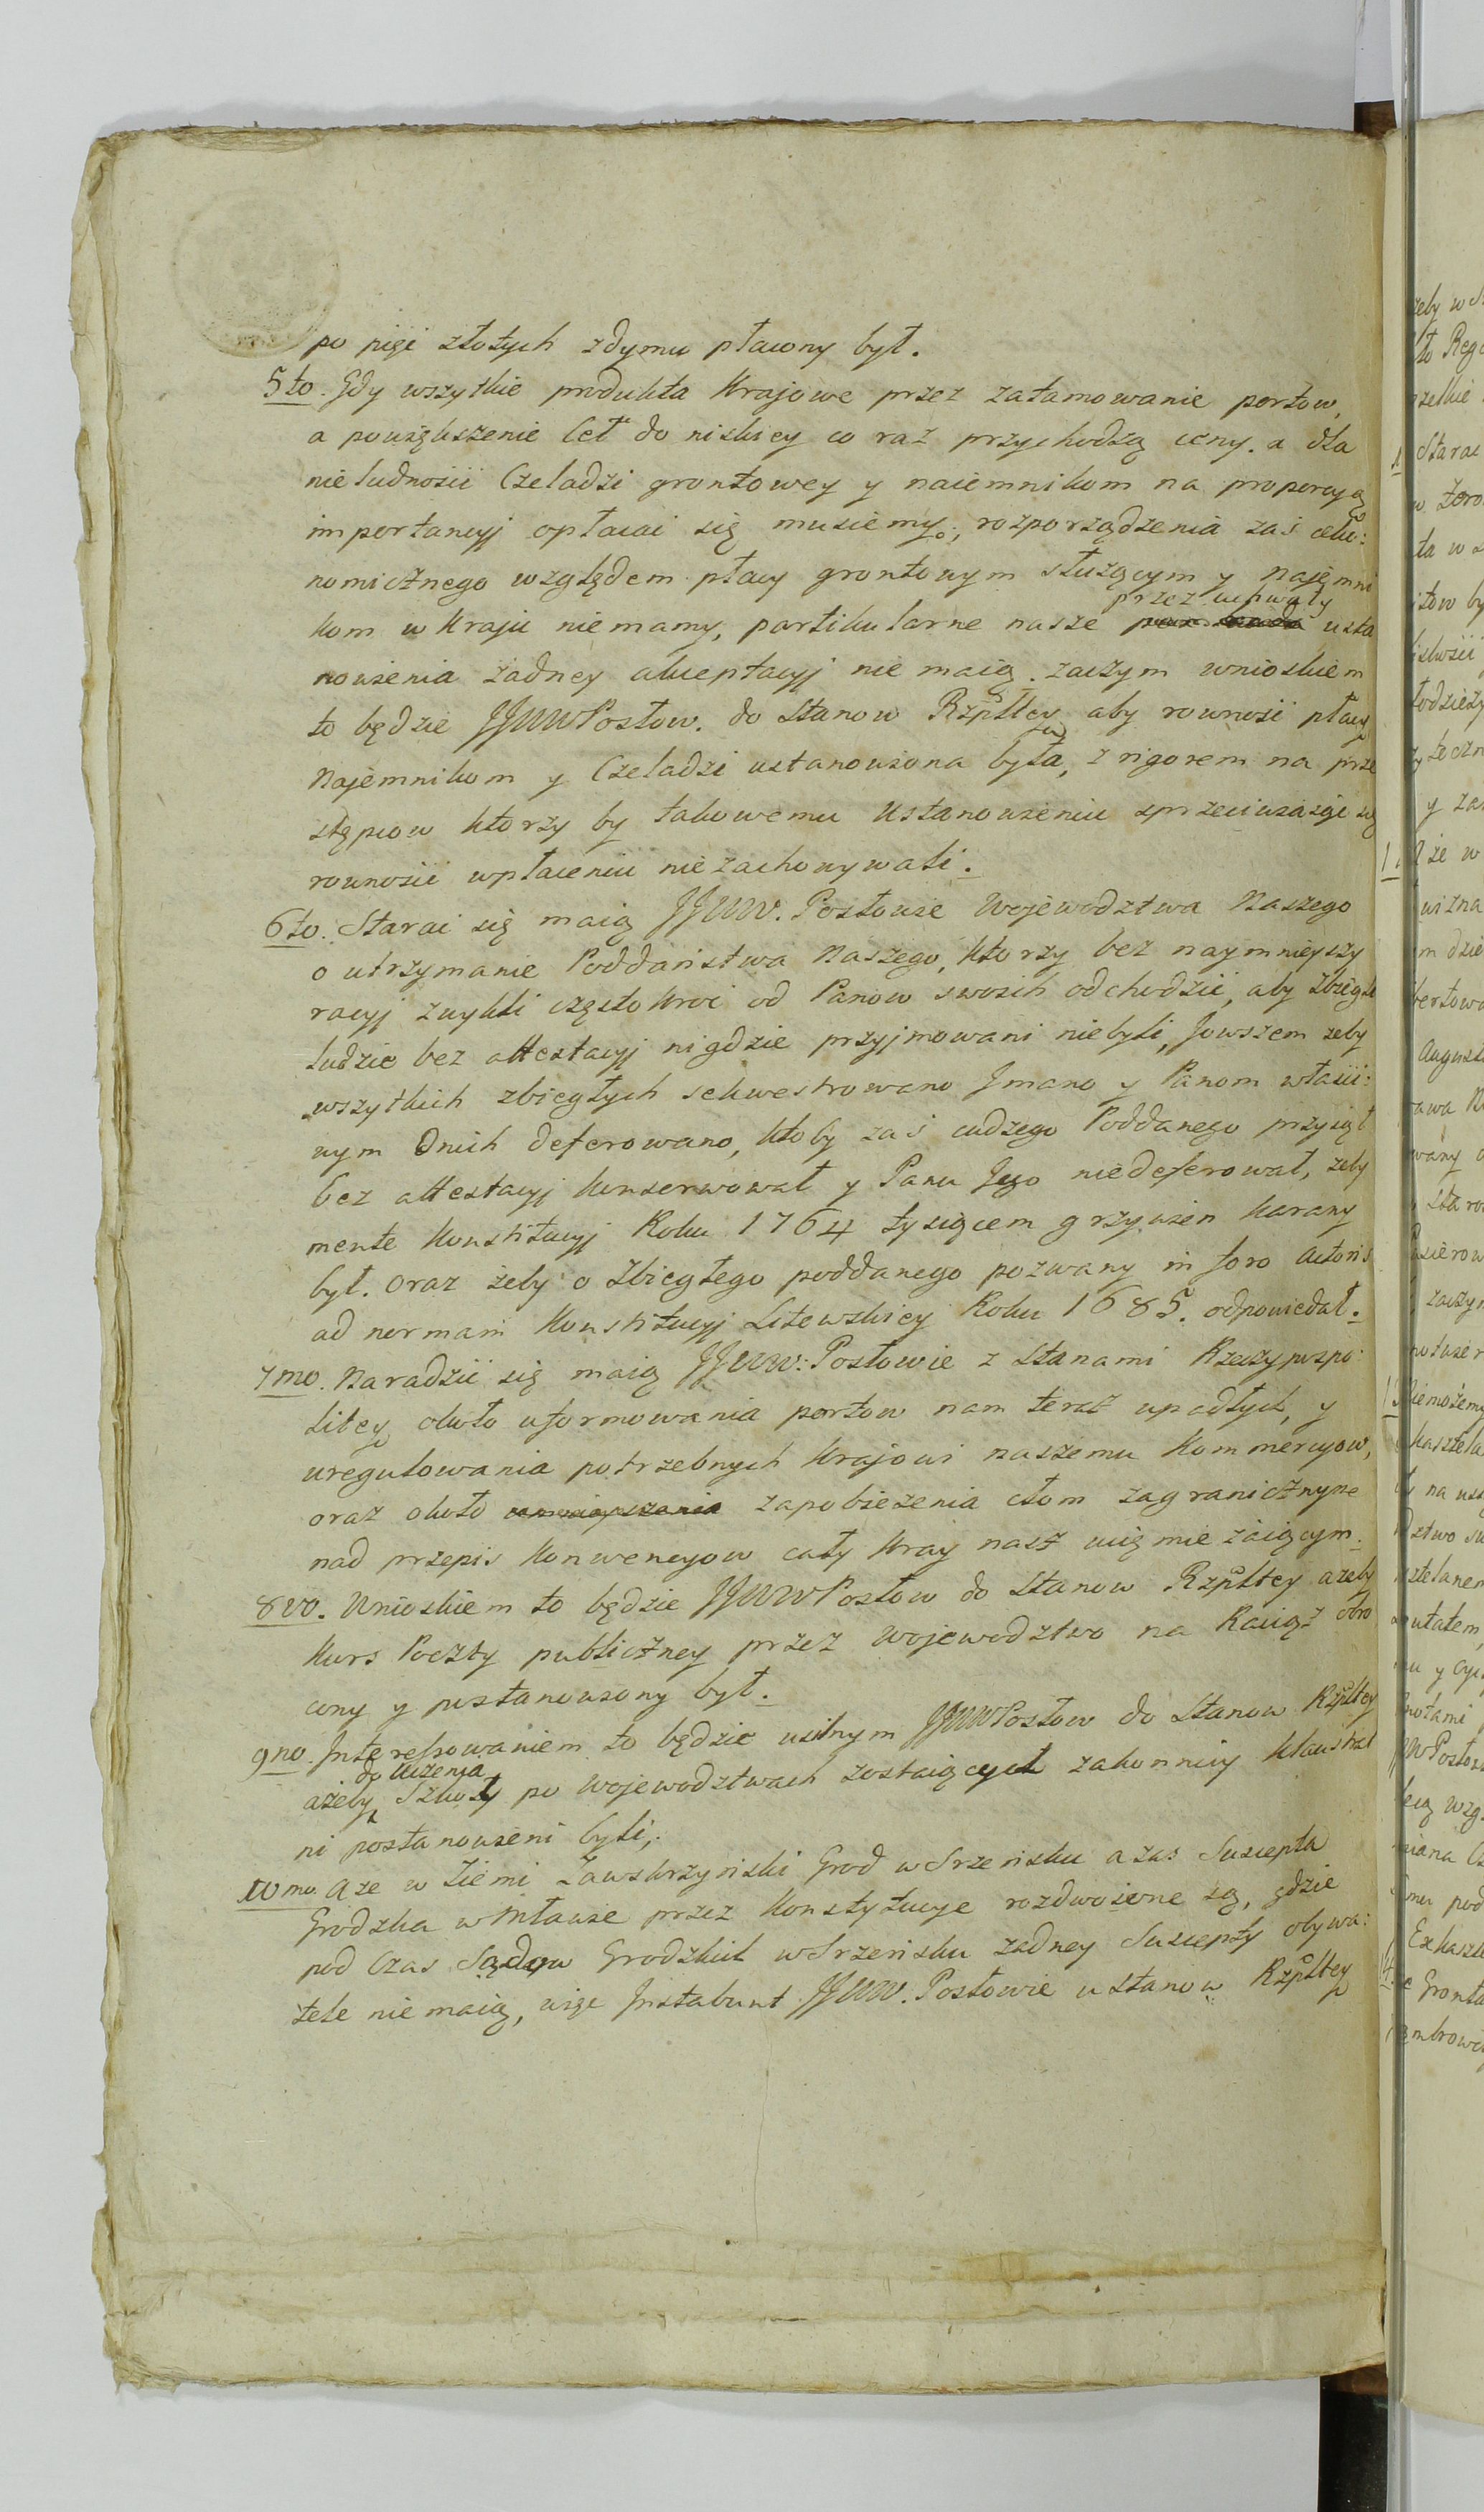 po pięć złotych zdymu płacony był.
5to. Gdy wszytkie produkta Krajowe przez zatamowanie portow,
a powiększenie Ceł do niskiey co raz przychodzą ceny. a dla
nieludnosći Czeladzi grontowey y naiemnikom na proporcyą
importancyj opłacać się musiemy; rozporządzenia zaś oeko:
nomicznego względem płacy grontowym słuzącym y najemni
kom w Kraju niemamy, partikularne nasze przez uchwały usta
nowienia żadney akceptacyj nie maią. zaczym wnioskiem
to będzie JJWW Posłow. do Stanow Rzpltey aby rownosć płacy
Najemnikom y Czeladzi ustanowiona była, z rigorem na prze
stępcow ktorzy by takowemu Ustanowieniu sprzeciwiaiąc się
rownosći wpłaceniu niezachowywali.
6to. Starać się maią JJWW. Posłowie Wojewodztwa Naszego
o utrzymanie Poddaństwa Naszego, ktorzy bez naymnieyszy
racyj zwykli częstokroć od Panow swoich odchodzić, aby zbiegli
ludzie bez attestacyj nigdzie przyjmowani niebyli, Jowszem zeby
wszytkich zbiegłych sekwestrowano Jmano y Panom właśći:
wym Onich deferowano, ktoby zaś cudzego Poddanego przyiął
bez attestacyj konserwował y Panu Jego niedeferował, zeby
mente Konstitucyj Roku 1764 tysiącem grzywien karany
był. oraz żeby o Zbiegłego poddanego pozwany in foro Actoris
ad normam Konstitucyj Litewskiey Roku 1685. odpowiedał.
7mo. Naradzić się maią JJWW: Posłowie z Stanami Rzeczypospo:
litey około uformowania portow nam teraz upadłych, y
uregulowania potrzebnych Krajowi naszemu Kommercyow,
oraz około zapobieżenia cłom zagranicznym
nad przepis Konwencyow cały Kray nasz uiąmiężaiącym.
8vo. Wnioskiem to będzie JJWW Posłow do Stanow Rzpltey azeby
Kurs Poczty publiczney przez Wojewodztwo na Raciąż obro
cony y postanowiony był.
9no. Interessowaniem to będzie usilnym JJWW Posłow do Stanow Rzpltey
ażeby do Uczenia Szkoły po Wojewodztwach zostaiących zakonnicy klaustral
ni postanowieni byli;
10mo. Aże w Ziemi Zawskrzyński Grod w Srzeńsku a zaś Suscepta
Grodzka w Mławie przez Konstytucye rozdwoione są, gdzie
pod Czas Sądow Grodzkich w Srzeńsku zadney Suscepty obywa:
tele nie maią, więc Jnstabunt JJWW. Posłowie u Stanow Rzpltey